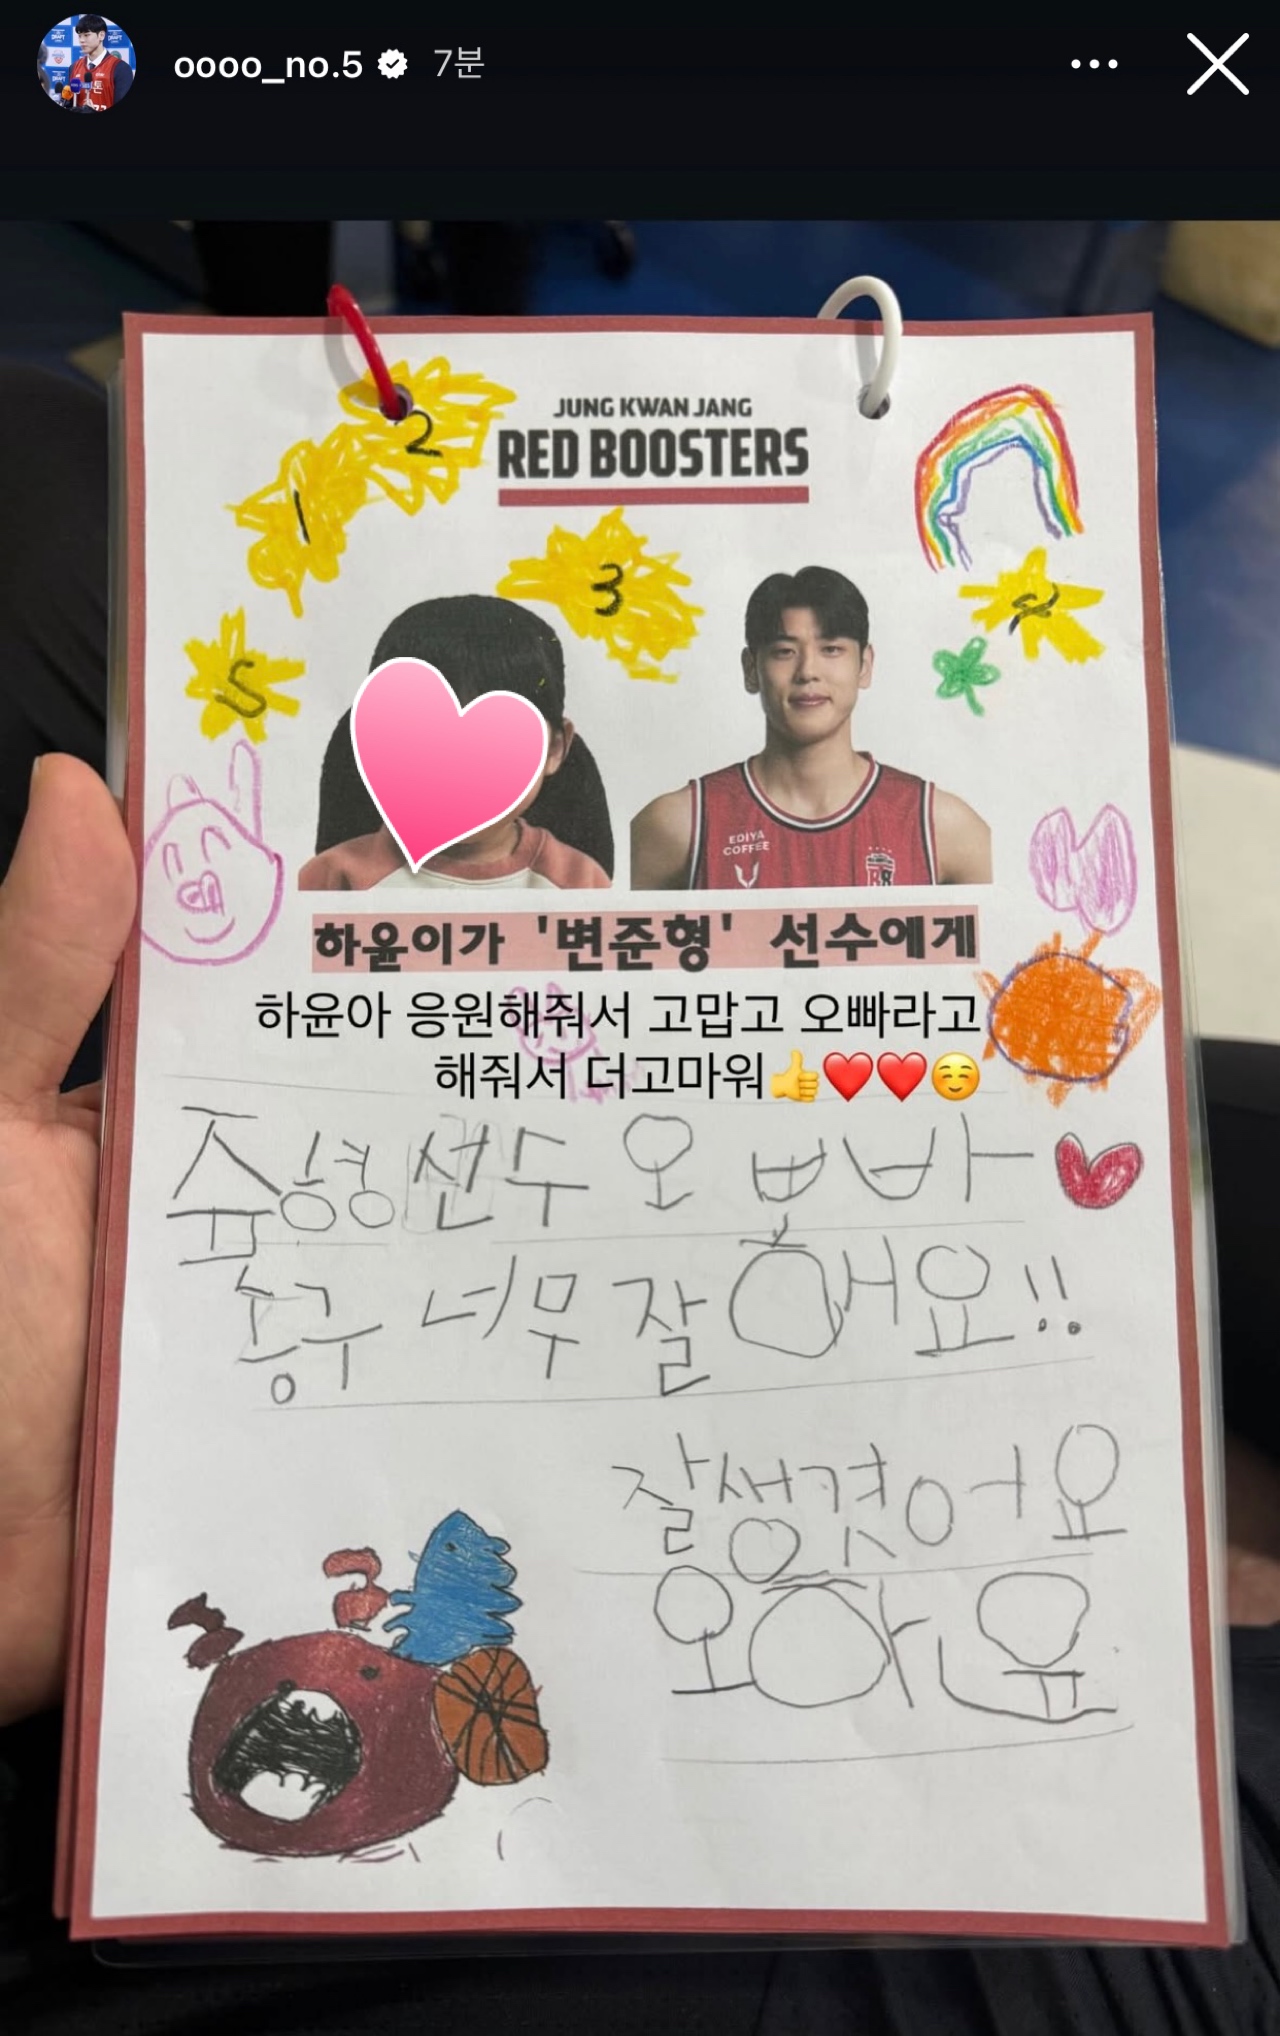 oooo_no.5 7분
2
1
JUNG KWAN JANG
RED BOOSTERS
3
5
EDIYA
COFFEE
하윤이가 '변준형' 선수에게
하윤아 응원해줘서 고맙고 오빠라고
해줘서 더고마워👍❤️❤️☺️
줍형선수 오빠
농구 너무 잘해요!!
잘생겻어요